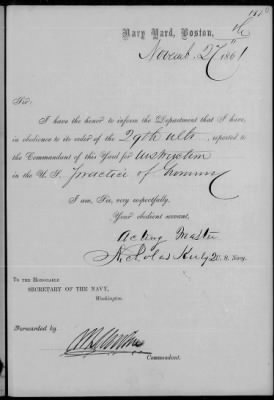 Navy Yard, Boston,
Novemb. 27th 1861
Sir:
I have the honor to inform the Department that I have,
in obedience to its order of the 29th ulto, reported to
the Commandant of this Yard for Instruction
in the U. S. practice of Gunnery
I am, Sir, very respectfully,
Your obedient servant,
Acting Master
Nicholas U. S. Navy.
To the Honorable
SECRETARY OF THE NAVY,
Washington.
Forwarded by
Commandant.